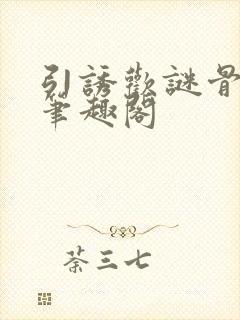 引誘歡謎骨
筆趣閣
荼三七